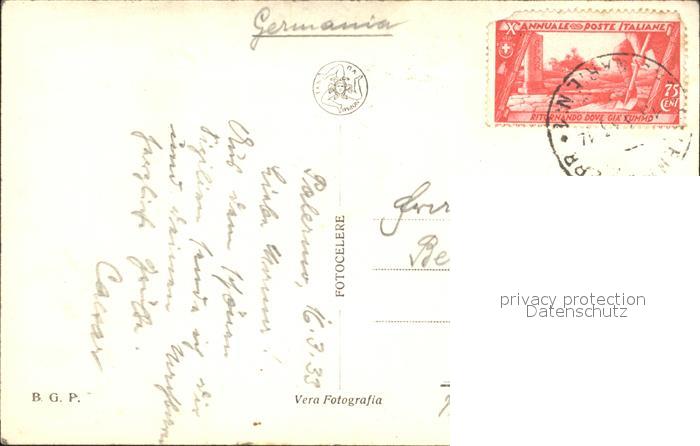 Germania
Xº ANNUALE POSTE ITALIANE
75
CENT
RITORNANDO DOVE GIÀ FUMMO
Palermo, 16.3.33
Liebe !
Aus dem schönen
Sizilien sende ich dir
und deinen
herzliche Grüße.
Caesar
FOTOCELERE
Be
privacy protection
Datenschutz
B. G. P.
Vera Fotografia